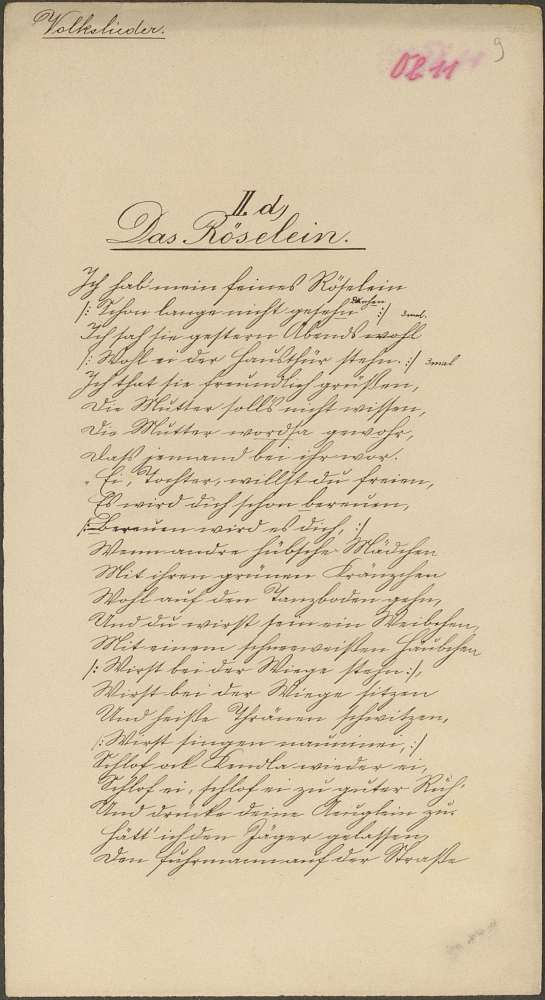 Volkslieder.
9
02 11
II. d,
Das Röselein.
Ich hab mein feines Röselein
/: Schon lange nicht gesehn :/ 3mal.
Ich sah sie gestern Abends wohl
/: Wohl ei der Hausthür stehn. :/ 3mal
Ich that sie freundlich grüßen,
Die Mutter solls nicht wissen,
Die Mutter wordsa gewohr,
Daß jemand bei ihr wor.
"Ei, Tochter, willst du freien,
Es wird dich schon bereuen,
/: Bereuen wird es dich, :/
Wenn andre hübsche Mädchen
Mit ihren grünen Kränzchen
Wohl auf den Tanzboden gehn,
Und du wirst sein ein Weibchen,
Mit einem schneeweißen Häubchen
/: Wirst bei der Wiege stehn :/,
Wirst bei der Wiege sitzen
Und heiße Thränen schwitzen,
/: Wirst singen nauninei, :/
Schlof ock Kendla wieder ei,
Schlof ei, schlof ei zu guter Ruh'
Und drücke deine Aeuglein zu.
Hätt' ich den Jäger gelassen,
Den Fuhrmann auf der Straße